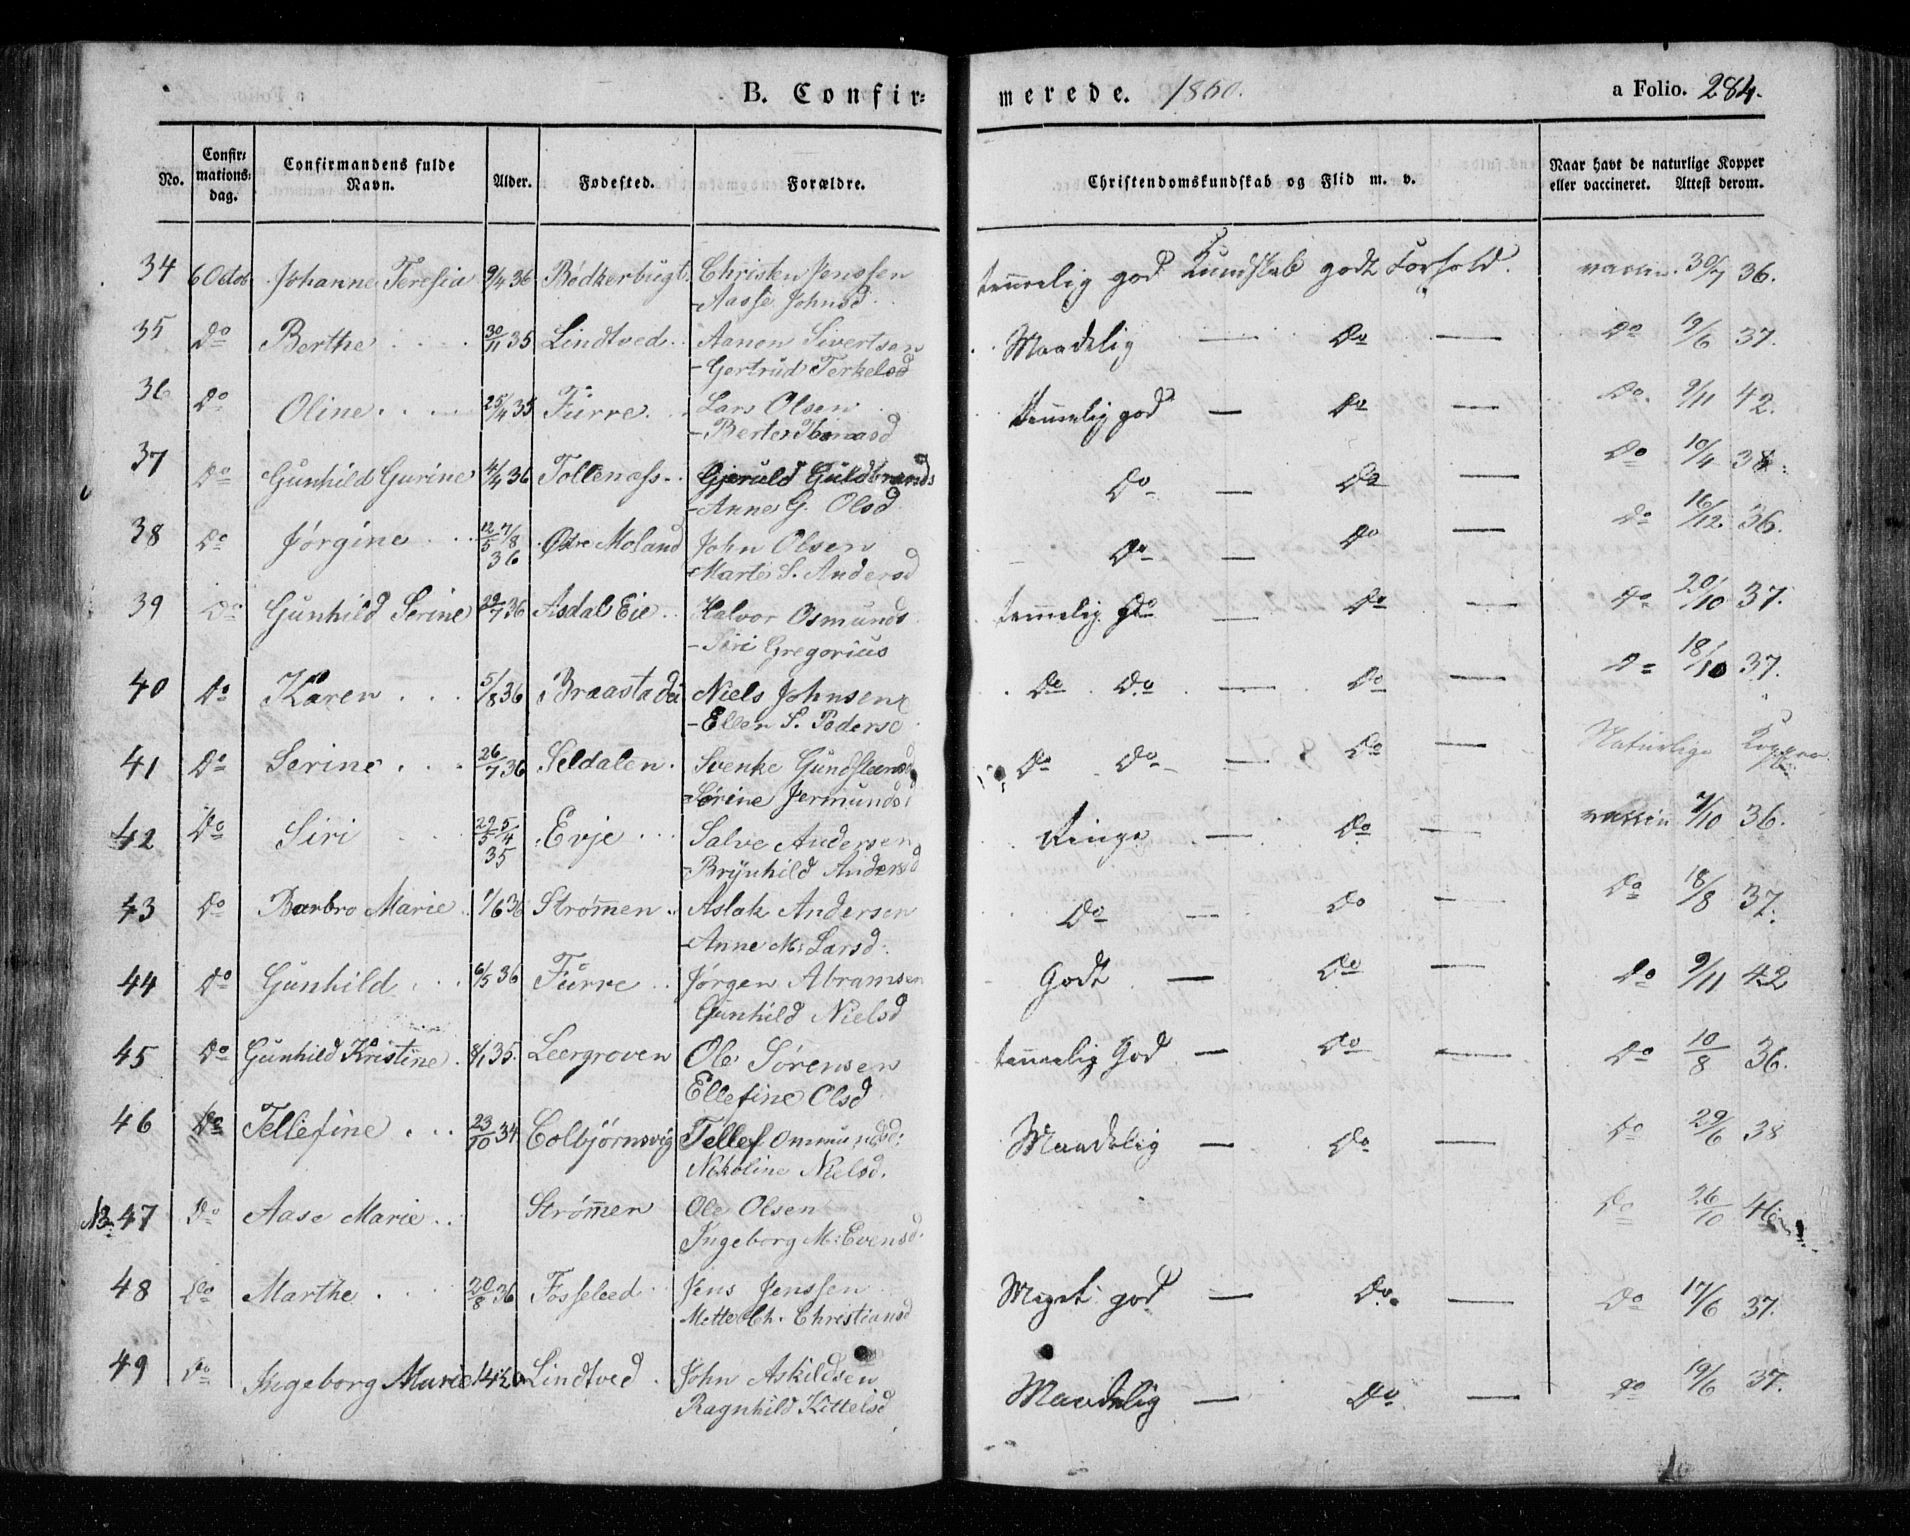 B. Confir= merede. 1850. a Folio. 284.
No. Confir=mations=dag. Confirmandens fulde Navn. Alder. Fødested. Forældre. Christendomskundskab og Flid m. v. Naar havt de naturlige Kopper eller vaccineret. Attest derom.
34 6 Octob Johanne Teresia 9/4 36 Bødkerbugt. Christen Jenssen temmelig god Kundskab godt Forhold. vaccin. 30/7 36.
- Aasse Johnsd.
35 Do Berthe 30/11 35 Lindtved Aanen Sivertsen Maadelig — Do — Do 19/6 37.
- Gertrud Terkelsd
36 Do Oline 25/4 35 Furre Lars Olsen temmelig god — Do — Do. 9/11 42.
- Berte Thomasd
37 Do Gunhild Gurine 4/4 36 Tollenæss Gjeruld Guldbrands Do — Do — Do 10/4 38.
- Anne G. Olsd.
38 Do Jørgine 12/5 7/8 36 Østre Moland John Olsen Do — Do — Do 16/12 36.
Marte S. Andersd
39 Do Gunhild Serine 29/7 36 Asdal Eie Halvor Osmunds temmelig Do — Do — Do 20/10 37.
- Siri Gregorius
40 Do Karen 5/8 36 Braastad Niels Johnsen Do Do — Do — Do 18/10 37.
- Ellen S. Peders
41 Do Serine 26/7 36 Seldalen Svenke Gundsteens Do Do — Do — Naturlige Kopper
- Sørine Jermunds
42 Do Siri 29/5 5/4 35 Evje Salve Andersen Ringe — Do — vaccin 7/10 36.
- Brynhild Andersd
43 Do Barbro Marie 1/6 36 Strømen Aslak Andersen Do — Do — Do 18/8 37.
- Anne M. Larsd.
44 Do Gunhild 6/5 36 Furre Jørgen Abramsen Godt — Do — Do 9/11 42
Gunhild Nielsd
45 Do Gunhild Kristine 8/1 35. Leergroven Ole Sørensen temmelig God — Do — Do 10/8 36.
Ellefine Olsd
46 Do Tellefine 23/10 34 Colbjørnsvig Tellef Ommundsd: Maadelig — Do — Do 29/6 38
Nikoline Nielsd.
NB. 47 Do Aase Marie Strømen Ole Olsen Do 26/10 46
Ingeborg M: Evensd.
48 Do Marthe 20/8 36 Fosseled Jens Jenssen Meget god — Do. — Do 17/6 37.
Mette Ch. Christiansd
49 Do Ingeborg Marie Lindtved John Askildsen Maadelig — Do — Do 19/6 37.
Ragnhild Kittelsd